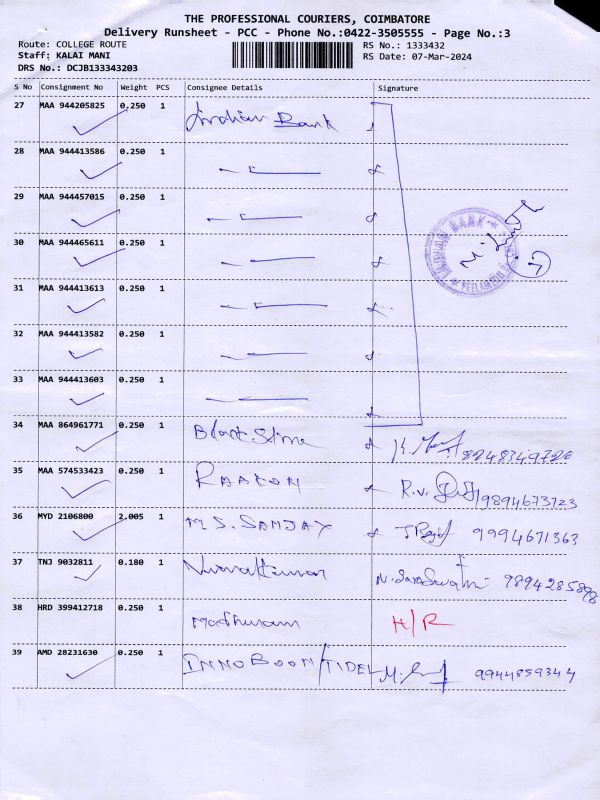 THE PROFESSIONAL COURIERS, COIMBATORE
Delivery Runsheet - PCC - Phone No.:0422-3505555 - Page No.:3
Route: COLLEGE ROUTE RS No.: 1333432
Staff: KALAI MANI RS Date: 07-Mar-2024
DRS No.: DCJB133343203
S No Consignment No Weight PCS Consignee Details Signature
27 MAA 944205825 0.250 1 Indian Bank
28 MAA 944413586 0.250 1
29 MAA 944457015 0.250 1
30 MAA 944465611 0.250 1
INDIAN BANK
31 MAA 944413613 0.250 1
32 MAA 944413582 0.250 1
33 MAA 944413603 0.250 1
34 MAA 864961771 0.250 1 8248349720
35 MAA 574533423 0.250 1 RAAKON R.V. 9894673723
36 MYD 2106800 2.005 1 M S. SANJAY 9994671363
37 TNJ 9032811 0.180 1 N. Saraswathi
38 HRD 399412718 0.250 1 Madhuram H/R
39 AMD 28231630 0.250 1 INNOBOON/TIDEL 9944859344